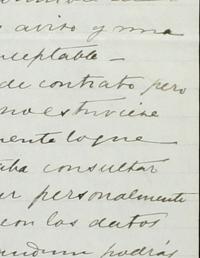 aviso y una
ceptable —
de contrato pero
no estuviese
mente lo que
aba consultar
er personalmente
con los datos
podrás